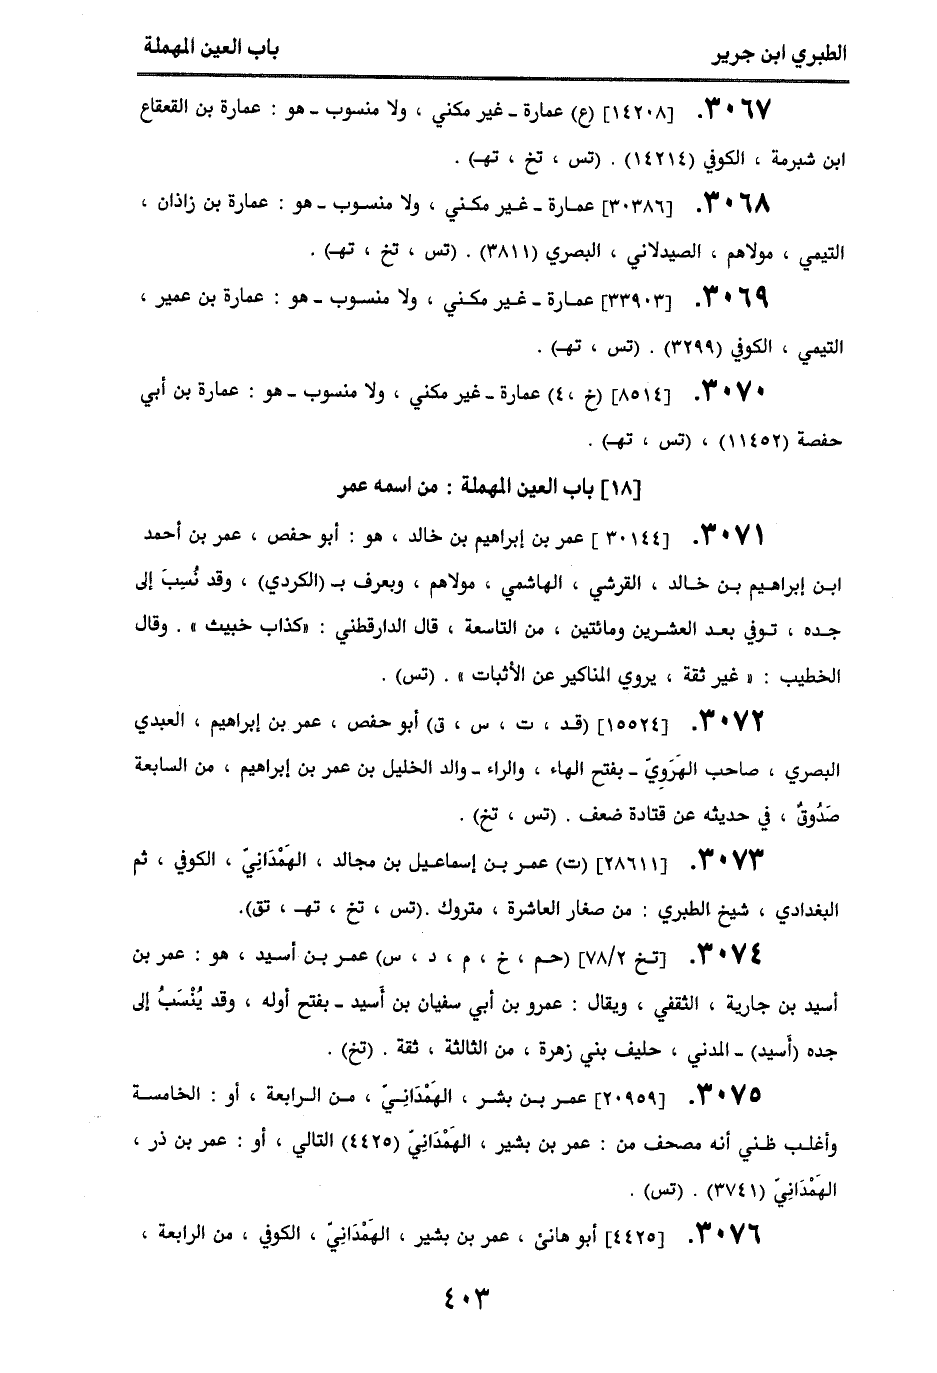 الطبري ابن جرير
باب العين المهملة
٣٠٦٧. [١٤٢٠٨] (ع) عمارة ـ غير مكني ، ولا منسوب ـ هو : عمارة بن القعقاع
ابن شبرمة ، الكوفي (١٤٢١٤) . (تس ، تخ ، تهـ) .
٣٠٦٨. [٣٠٣٨٦] عمارة ـ غير مكني ، ولا منسوب ـ هو : عمارة بن زاذان ،
التيمي ، مولاهم ، الصيدلاني ، البصري (٣٨١١) . (تس ، تخ ، تهـ) .
٣٠٦٩. [٣٣٩٠٣] عمارة ـ غير مكني ، ولا منسوب ـ هو : عمارة بن عمير ،
التيمي ، الكوفي (٣٢٩٩) . (تس ، تهـ) .
٣٠٧٠. [٨٥١٤] (خ ،٤) عمارة ـ غير مكني ، ولا منسوب ـ هو : عمارة بن أبي
حفصة (١١٤٥٢) ، (تس ، تهـ) .
[١٨] باب العين المهملة : من اسمه عمر
٣٠٧١. [٣٠١٤٤ ] عمر بن إبراهيم بن خالد ، هو : أبو حفص ، عمر بن أحمد
ابن إبراهيم بن خالد ، القرشي ، الهاشمي ، مولاهم ، ويعرف بـ (الكردي) ، وقد نُسِبَ إلى
جده ، توفي بعد العشرين ومائتين ، من التاسعة ، قال الدارقطني : «كذاب خبيث » . وقال
الخطيب : « غير ثقة ، يروي المناكير عن الأثبات » . (تس) .
٣٠٧٢. [١٥٥٢٤] (قد ، ت ، س ، ق) أبو حفص ، عمر بن إبراهيم ، العبدي
البصري ، صاحب الهَرَوِيّ ـ بفتح الهاء ، والراء ـ والد الخليل بن عمر بن إبراهيم ، من السابعة
صَدُوقٌ ، في حديثه عن قتادة ضعف . (تس ، تخ) .
٣٠٧٣. [٢٨٦١١] (ت) عمر بن إسماعيل بن مجالد ، الهَمْدَانِيّ ، الكوفي ، ثم
البغدادي ، شيخ الطبري : من صغار العاشرة ، متروك .(تس ، تخ ، تهـ ، تق).
٣٠٧٤. [تخ ٧٨/٢] (حم ، خ ، م ، د ، س) عمر بن أسيد ، هو : عمر بن
أسيد بن جارية ، الثقفي ، ويقال : عمرو بن أبي سفيان بن أَسيد ـ بفتح أوله ، وقد يُنْسَبُ إلى
جده (أَسيد) ـ المدني ، حليف بني زهرة ، من الثالثة ، ثقة . (تخ) .
٣٠٧٥. [٢٠٩٥٩] عمر بن بشر ، الهَمْدَانِيّ ، من الرابعة ، أو : الخامسة
وأغلب ظني أنه مصحف من : عمر بن بشير ، الهَمْدَانِيّ (٤٤٢٥) التالي ، أو : عمر بن ذر ،
الهَمْدَانِيّ (٣٧٤١) . (تس) .
٣٠٧٦. [٤٤٢٥] أبو هانئ ، عمر بن بشير ، الهَمْدَانِيّ ، الكوفي ، من الرابعة ،
٤٠٣